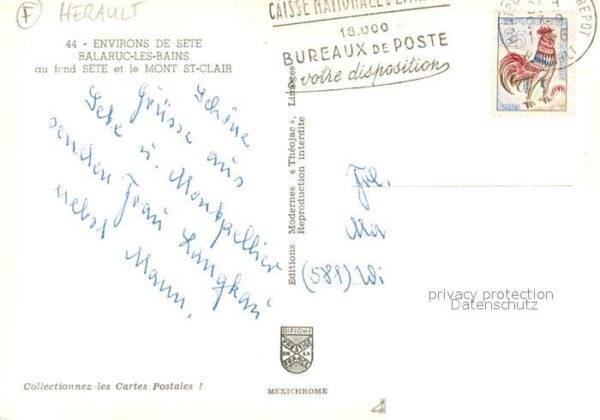 F HERAULT
44 - ENVIRONS DE SETE
BALARUC-LES-BAINS
au fond SETE et le MONT ST-CLAIR
CAISSE NATIONALE
18.000
BUREAUX DE POSTE
votre disposition
Schöne
Grüsse aus
Sete u. Montpellier
senden Frau
nebst Mann.
Editions Modernes « Théojac », Limoges
Reproduction interdite
Frl.
(581) Wi
privacy protection
Datenschutz
DIPLOME
PRESTIGE
DE LA
FRANCE
Collectionnez les Cartes Postales !
MEXICHROME